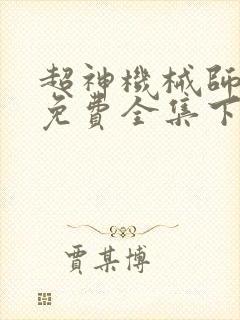 超神機械師
免費全集下
賈某博